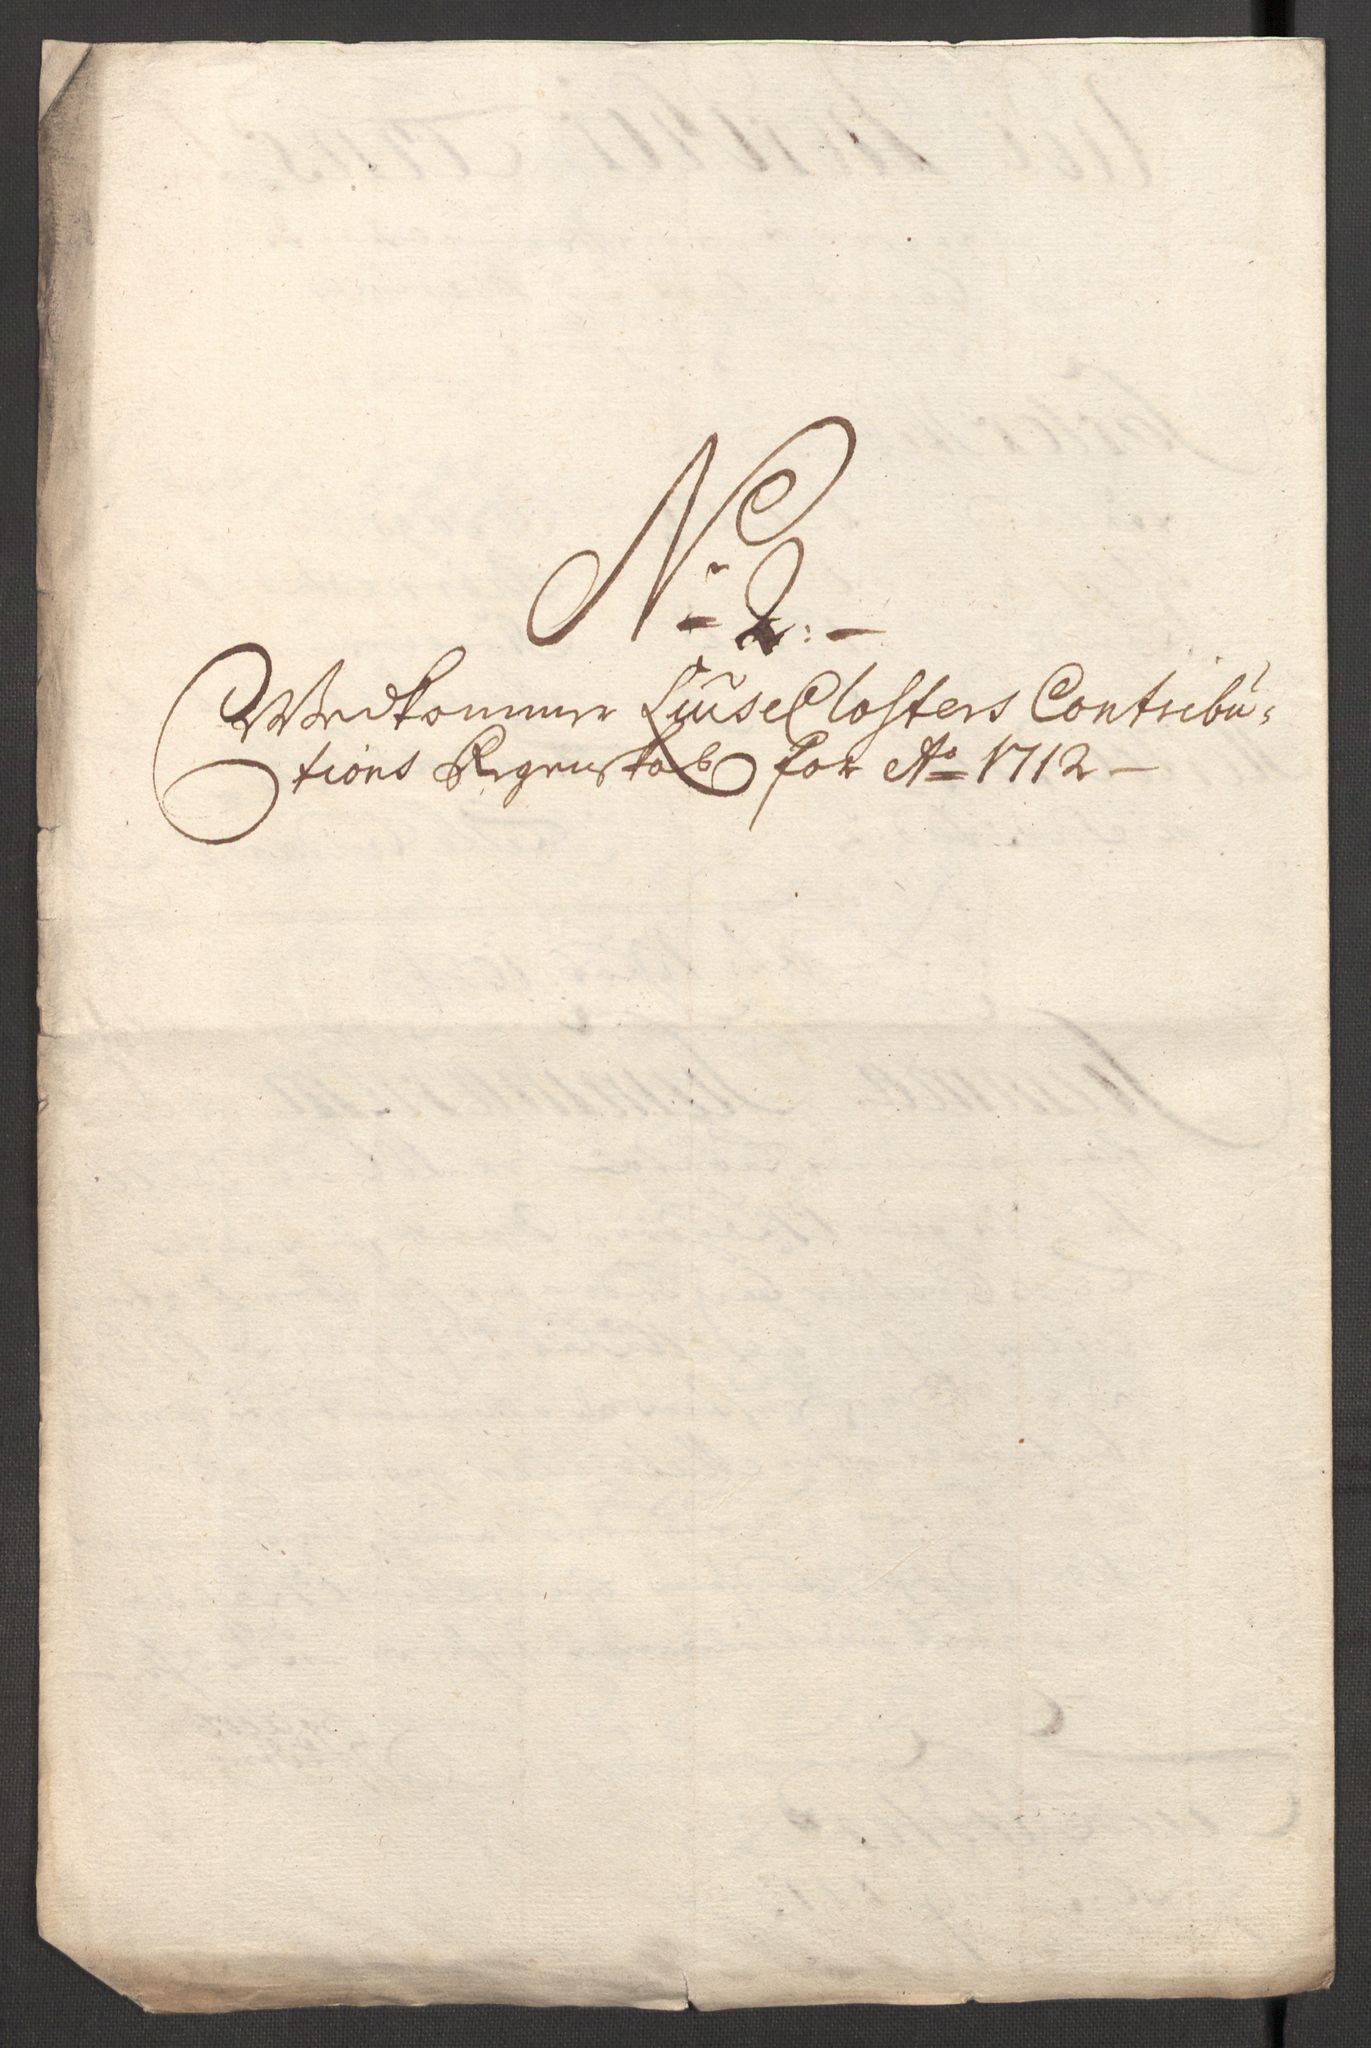 No 2.
Vedkommer Liuse Closters Contribu-
tions Regenskab for Ao 1712